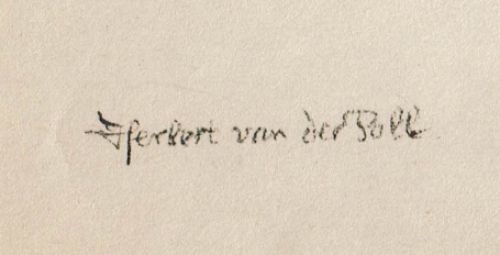 Herbert van der Poll